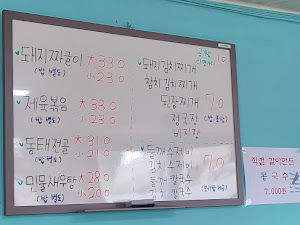 돼지짜글이 大 33.0
(밥 별도) 小 23.0
제육볶음 大 33.0
(밥 별도) 小 23.0
동태전골 大 31.0
(밥 별도) 小 21.0
민물새우탕 大 28.0
(밥 별도) 小 20.0
공기밥 1.0
라면사리
돼지김치찌개
참치김치찌개
된장찌개 7.0
청국장 (밥 포함)
비지장
들깨수제비
김치수제비 7.0
들깨칼국수
김치칼국수
직접 갈아만든
콩국수
7,000원